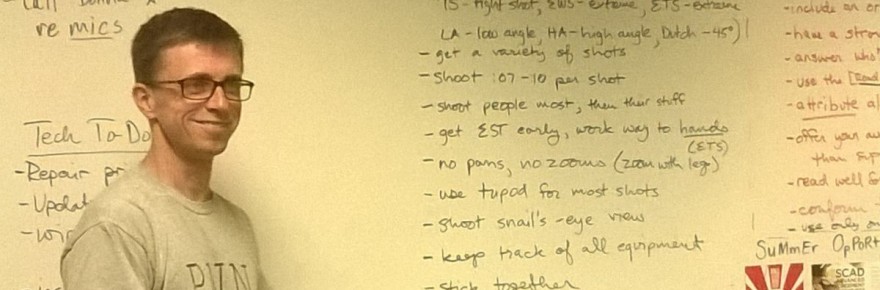 re mics
Tech To-Do
- Repair
- Updat
TS - tight shot, EWS - extreme, ETS - extreme
LA - low angle, HA - high angle, Dutch - 45°)
- get a variety of shots
- shoot :07 - 10 per shot
- shoot people most, then their stuff
- get EST early, work way to hands
(ETS)
- no pans, no zooms (zoom with legs)
- use tripod for most shots
- shoot snail's - eye view
- keep track of all equipment
- stick together
- include an
- have a stron
- answer who
- use the
- attribute
- offer your
than
- read well
- conform
- use only
SuMmEr OpPoRt
SCAD
PTN